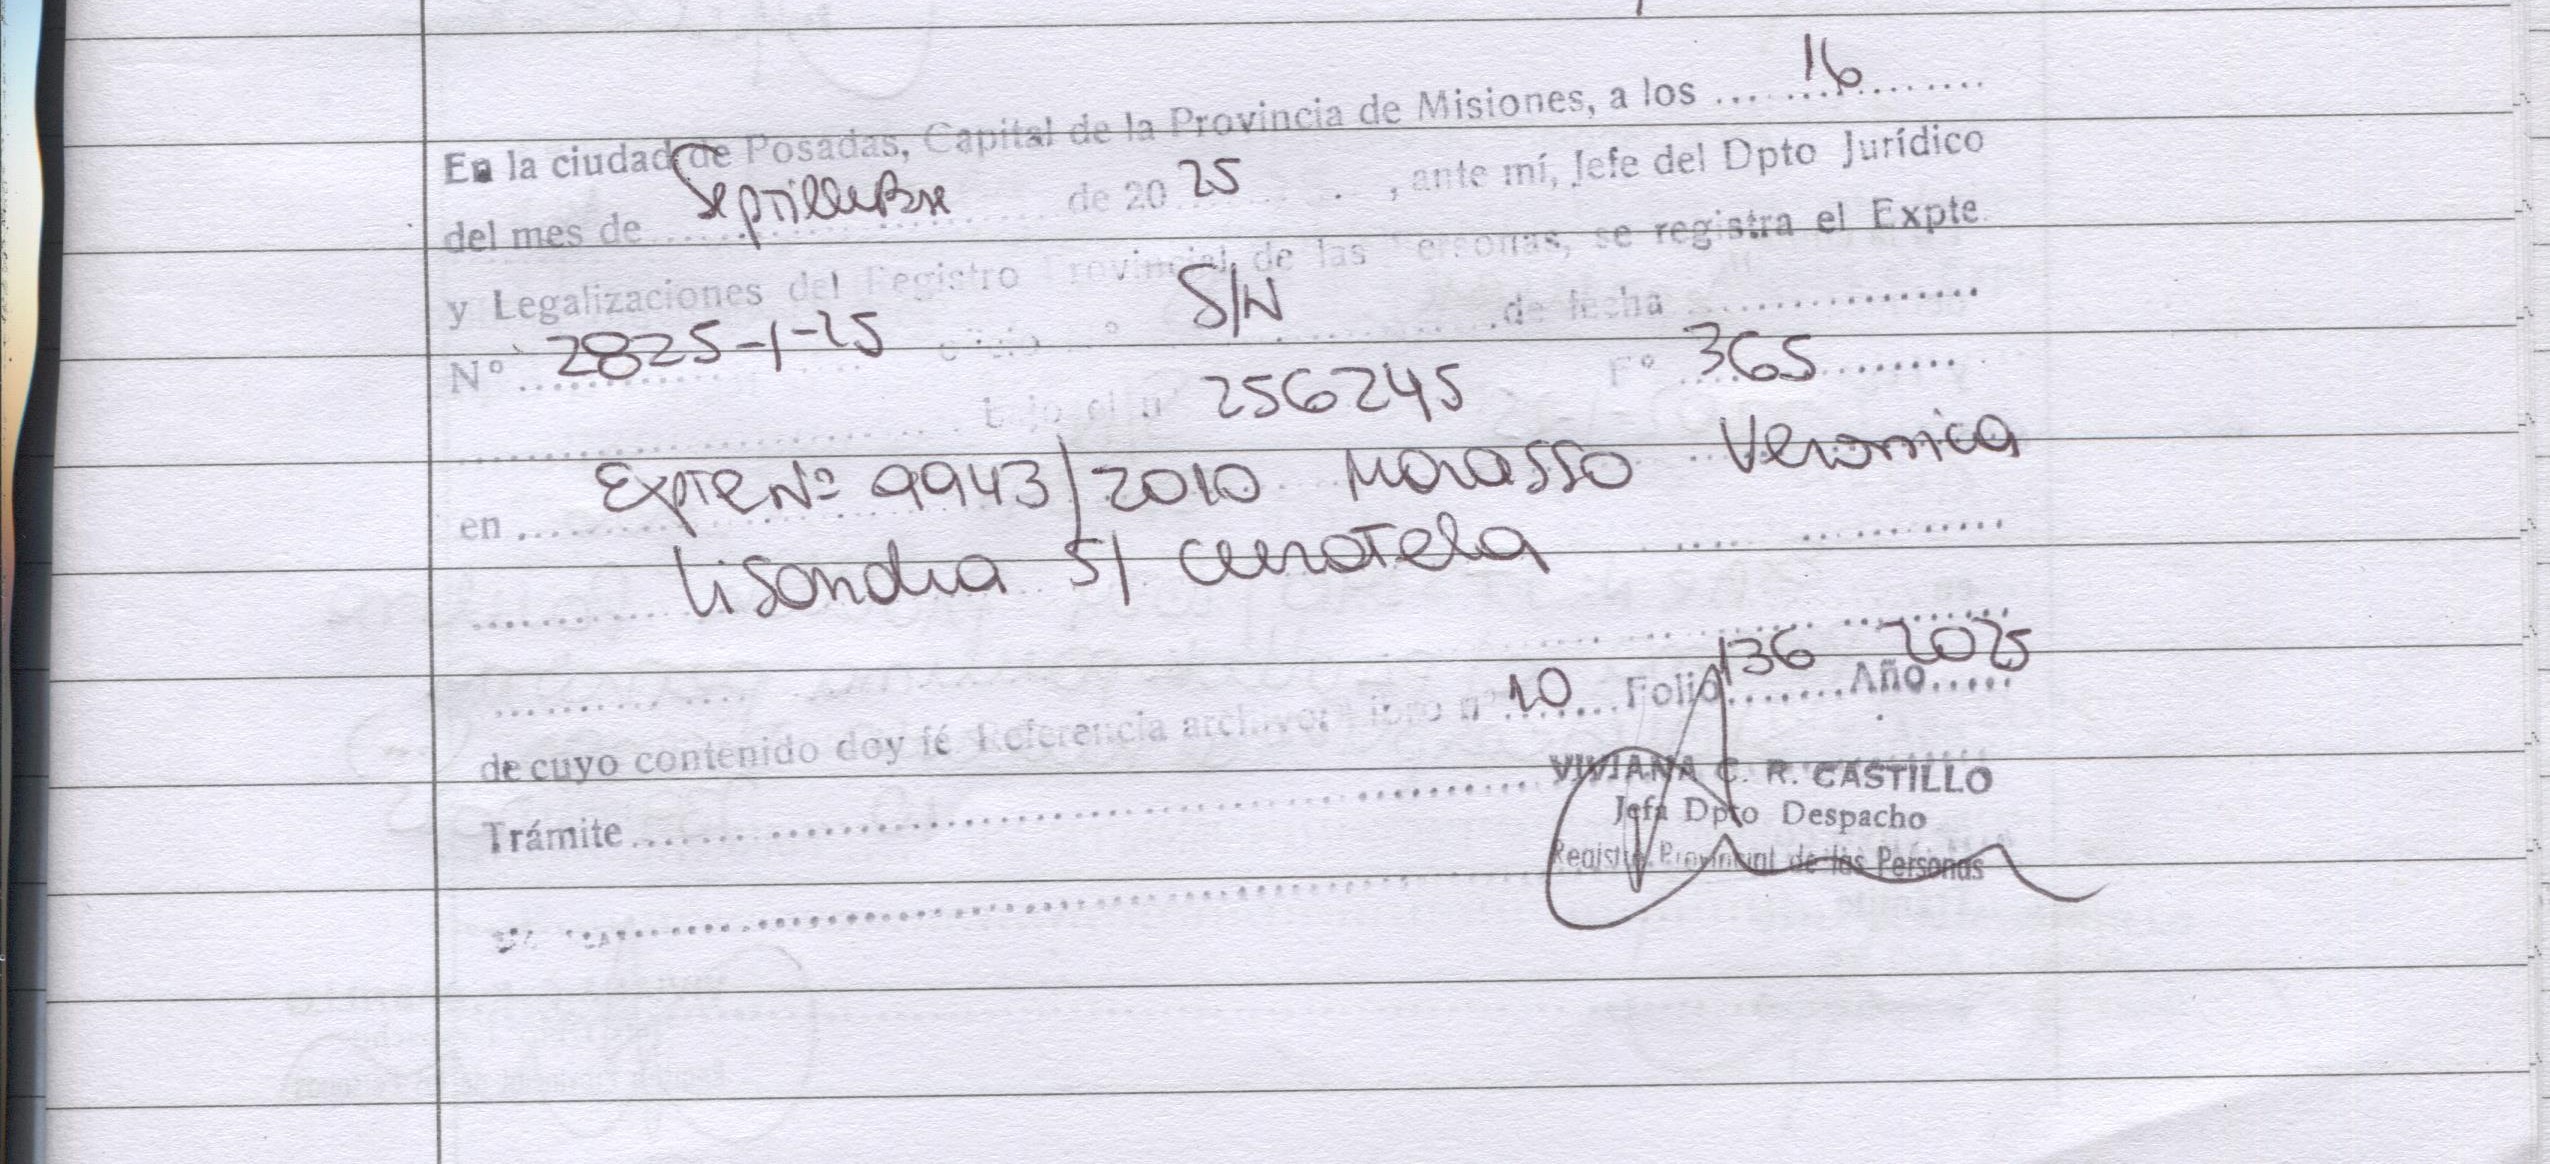 En la ciudad de Posadas, Capital de la Provincia de Misiones, a los ... 16 ...
del mes de Septiembre de 20 25, ante mí, Jefe del Dpto Jurídico
y Legalizaciones del Registro Provincial de las Personas, se registra el Expte
Nº 2825-1-25 oficio nº S/N de fecha
bajo el nº 256245 Fº 365
en Expte Nº 9943/2010 Morasso Veronica
Lisandra S/ curatela
de cuyo contenido doy fé Referencia archivo: Libro nº 10 Folio 136 Año 2025
Trámite
VIVIANA C. R. CASTILLO
Jefa Dpto Despacho
Registro Provincial de las Personas